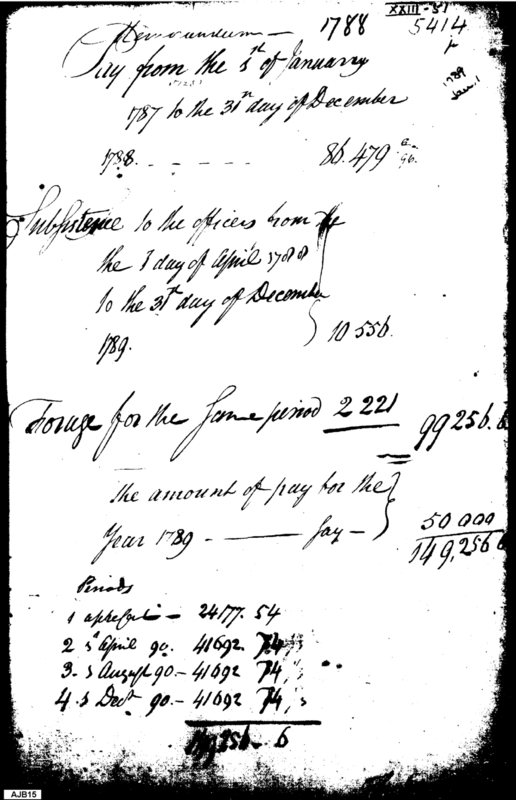 XXIII - 51
Memorandum — 1788 5414
Pay from the 1st of January
1789
Jan. 1
1787 to the 31st day of December
1788. - - - - 86.479 96.
Subsistence to the officers from the
the 1 day of April 1788
to the 31st day of December
1789. 10556.
Forage for the Same period 2221 99256.6
the amount of pay for the
Year 1789 — Say — 50000
149,256 6
Periods
1 24177. 54
2 1st April 90. 41692. 74
3. 1 August 90 - 41692 74
4. 1 Decr 90 - 41692 74
149256 - 6
AJB15